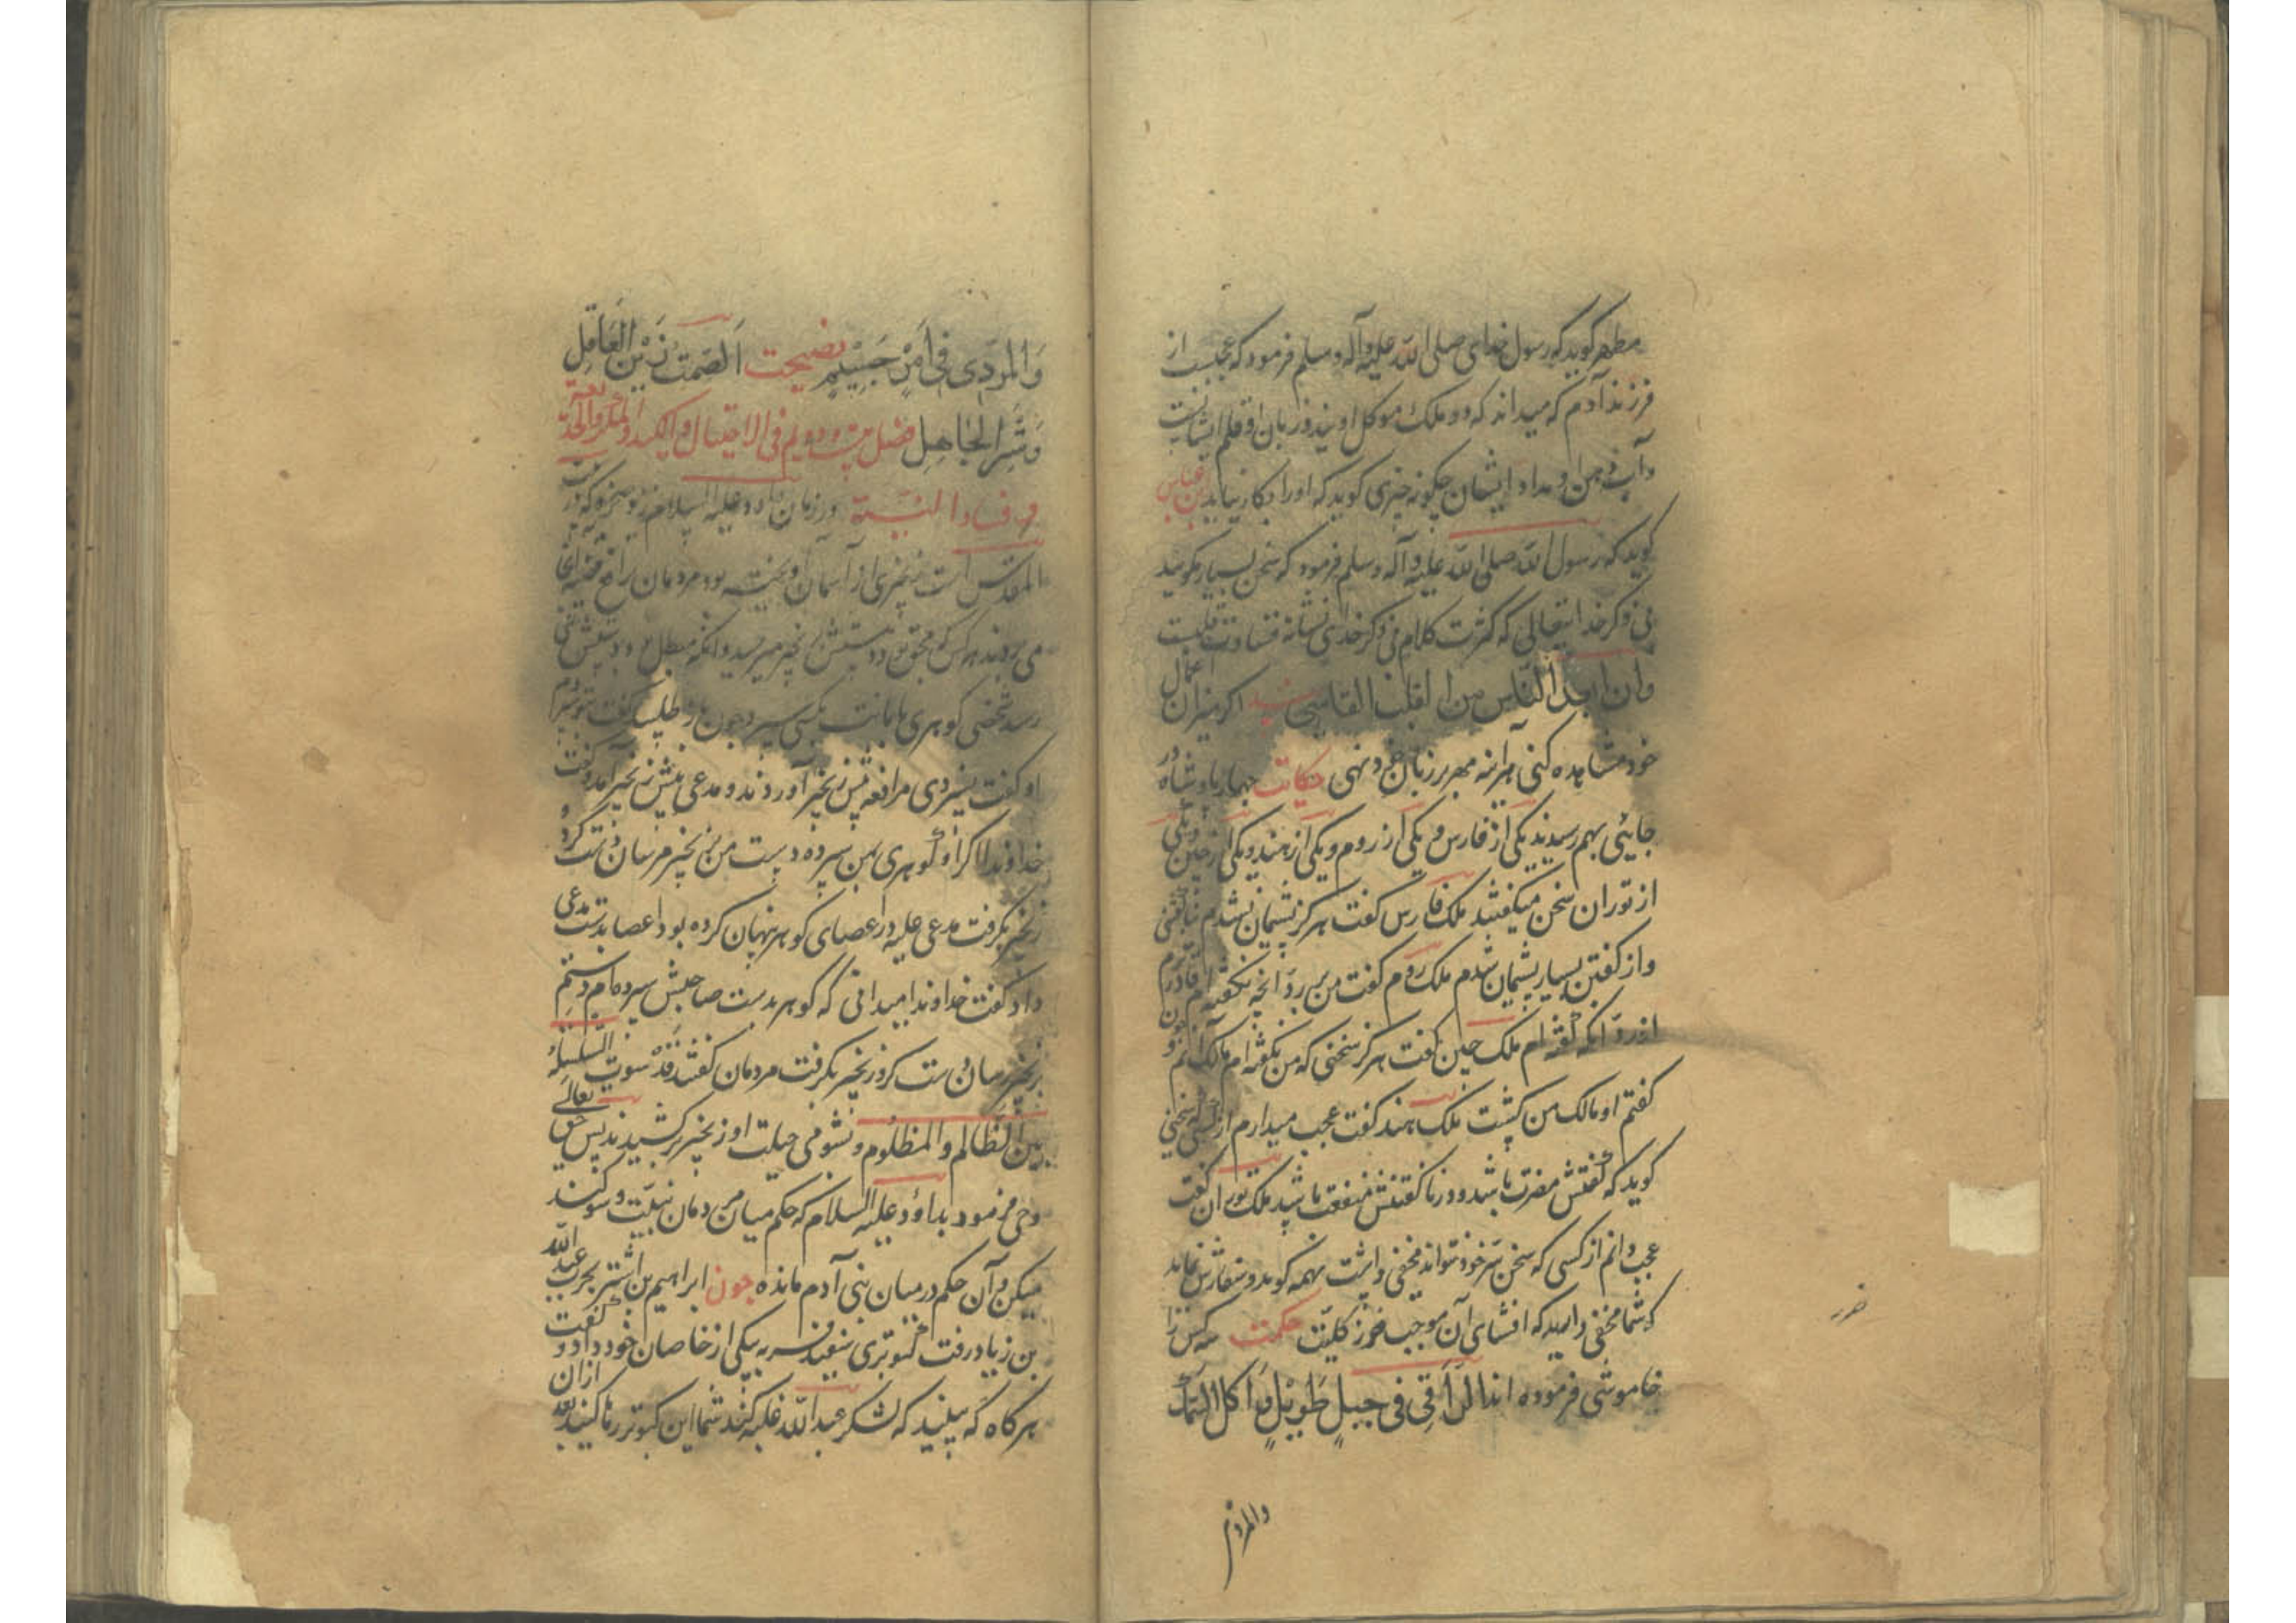 مطهر گوید که رسول خدای صلی الله علیه وآله وسلم فرمود که عجبست از
فرزند آدم که میداند که دو ملک موکل اویند و زبان او قلم ایشانست
و آب دهن او مداد ایشان چگونه چیزی گوید که او را بکار نیاید ابن عباس
گوید که رسول الله صلی الله علیه وآله وسلم فرمود که سخن بسیار مگویید
بی ذکر خدایتعالی که کثرت کلام بی ذکر خدای نشانه قساوت قلبست
وان ابعد الناس من الله القلب القاسی اگر میزان اعمال
خود مشاهده کنی هرآینه مهر بر زبان خود نهی حکایت چهار پادشاه در
جایئی بهم رسیدند یکی از فارس و یکی از روم و یکی از هند و یکی از چین و یکی
از توران سخن میگفتند ملک فارس گفت هرگز پشیمان نشدم بناگفتنی
و از گفتن بسیار پشیمان شدم ملک روم گفت من بر رد آنچه نگفته ام قادرترم
از رد آنکه گفته ام ملک چین گفت هرگز سخنی که من نگفته ام مالک آنم و چون
گفتم او مالک من گشت ملک هند گفت عجب میدارم از کسی که سخنی
گوید که گفتنش مضرت باشد و در ناگفتنش منفعت باشد ملک توران گفت
عجب دانم از کسی که سخن سر خود نتواند مخفی داشت بهمه گوید و سفارش نماید
که شما مخفی دارید که افشای آن موجب ضرر کلیست حکمت سه کس را
خاموشی فرموده اند الراقی فی جبل طویل و آکل السمک
ضرر
والمردی
والمردی فی امر جسیم نصیحت الصمت زین العاقل
وستر الجاهل فصل بیست و دویم فی الاحتیال والکید والمکر والخدیعة
و فساد النیة در زمان داود علیه السلام
المقدس است زنجیری از آسمان آویخته بود مردمان مرافعه آنجا
می بردند هر کس محق بود دستش بزنجیر میرسید و آنکه مبطل بود دستش نمی
رسد شخصی گوهری بامانت بکسی سپرد چون باز طلبید گفت بتو سپردم
او گفت نسپردی مرافعه پیش زنجیر آوردند و مدعی پیش زنجیر آمد و گفت
خداوندا اگر او گوهری بمن سپرده دست من بزنجیر مرسان و دست کرد و
زنجیر بگرفت مدعی علیه در عصای گوهر پنهان کرده بود عصا بدست مدعی
داد گفت خداوندا میدانی که گوهر بدست صاحبش سپرده ام دستم
بزنجیر رسان دست کرد زنجیر بگرفت مردمان گفتند قد سوت السلسلة
بین الظالم والمظلوم و بشومی حیلت او زنجیر برکشیدند پس حق تعالی
وحی فرمود بداؤد علیه السلام که حکم میان مردمان ببینت و سوگند
میکن و آن حکم در میان بنی آدم مانده چون ابراهیم بن اشتر بحرب عبد الله
بن زیاد رفت کبوتری سفید فربه بیکی از خاصان خود داد و گفت
هرگاه که ببینید که لشکر عبد الله غلبه کند شما این کبوتر رها کنید بعد ازان